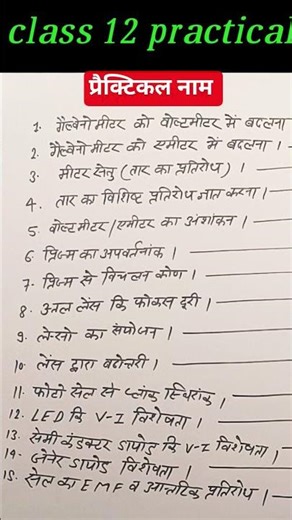 class 12 practical
प्रैक्टिकल नाम
1. गैल्वेनोमीटर को वोल्टमीटर में बदलना
2. गैल्वेनोमीटर को एमीटर में बदलना।
3. मीटर सेतु (तार का प्रतिरोध)।
4. तार का विशिष्ट प्रतिरोध ज्ञात करना।
5. वोल्टमीटर/एमीटर का अंशांकन।
6. प्रिज्म का अपवर्तनांक।
7. प्रिज्म से विचलन कोण।
8. उत्तल लेंस कि फोकस दूरी।
9. लेन्सो का संयोजन।
10. लेंस द्वारा
11. फोटो सेल से प्लांक स्थिरांक,
12. LED कि V-I विशेषता।
13. सेमीकंडक्टर डायोड कि V-I विशेषता।
14. जेनर डायोड विशेषता।
15. सेल का EMF व आन्तरिक प्रतिरोध।